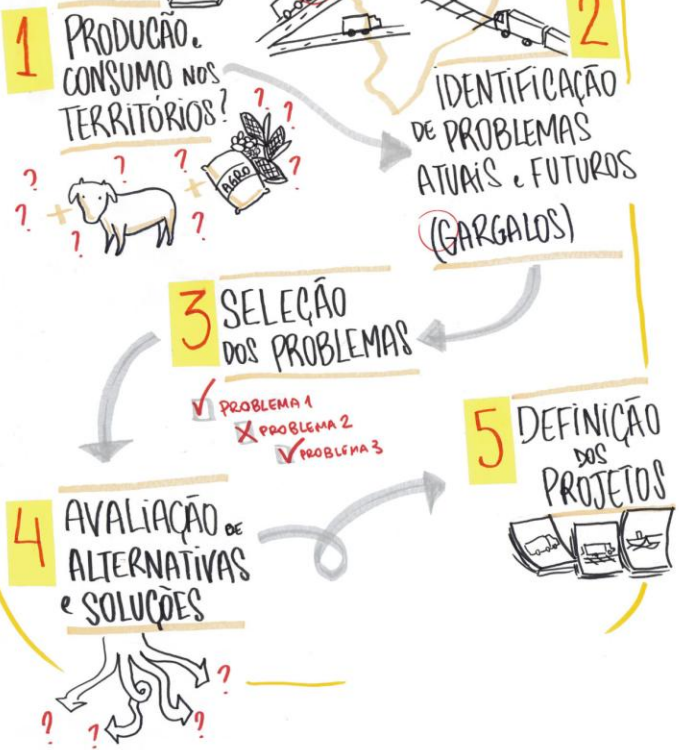 1
PRODUÇÃO e
CONSUMO NOS
TERRITÓRIOS?
? ?
? ? ? ?
? ? ?
AGRO
2
IDENTIFICAÇÃO
DE PROBLEMAS
ATUAIS e FUTUROS
(GARGALOS)
3
SELEÇÃO
DOS PROBLEMAS
PROBLEMA 1
PROBLEMA 2
PROBLEMA 3
4
AVALIAÇÃO DE
ALTERNATIVAS
e SOLUÇÕES
? ? ? ?
5
DEFINIÇÃO
DOS
PROJETOS